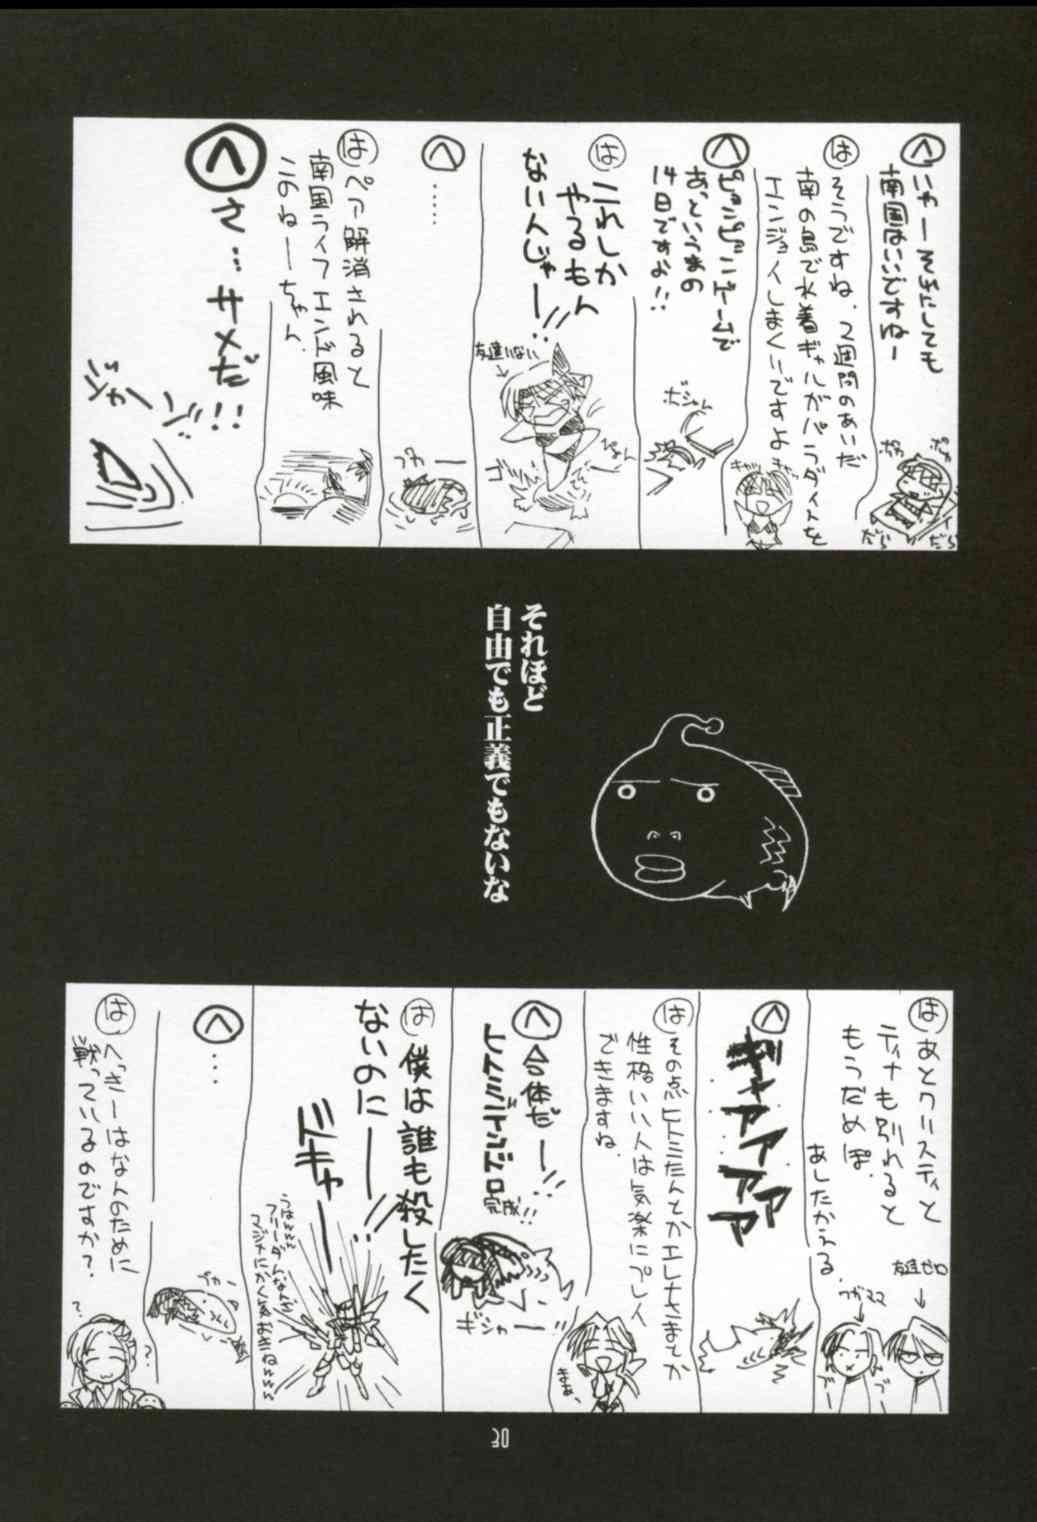 へ
いやーそれにしても
南国はいいですねー
ポワ
ポワ
だら
だら
は
そうですね、2週間のあいだ
南の島で水着ギャルがパラダイスを
エンジョイしまくりですよ
キャッ
へ
ピョンピョンゲームで
あっというまの
14日ですよ!!
ボシャン
は
これしか
やるもん
ないんじゃー!!
友達いない
ぴょん
へ
……
プカー
は
ペア解消されると
南国ライフエンド風味
このねーちゃん
へ
さ…サメだ!!
それほど
自由でも正義でもないな
は
あとクリスティと
ティナも別れると
もうだめぽ
あしたかえる
友達ゼロ
ブ
ブ
へ
ギャアアアアア
は
その点ヒトミたんとかエレナさまとか
性格いい人は気楽にプレイ
できますね
まあ、
へ
合体だー!!
完成!!
ギシャー!!
は
僕は誰も殺したく
ないのにーー!!
ドキャーー
へ
…
プカー
は
へっきーはなんのために
戦っているのですか?
?
?
30